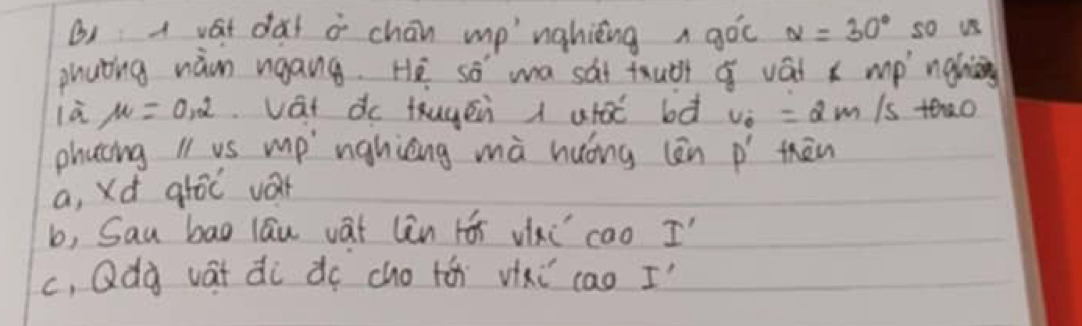 B1 : 1 vật đặt ở chân mp' nghiêng 1 góc α = 30° so vs
phương nằm ngang. Hệ số ma sát trượt giữa vật & mp' nghiêng
là μ = 0,2. Vật đc truyền 1 vtốc bđ v₀ = 2m/s theo
phương // vs mp' nghiêng mà hướng lên p' trên
a, xđ gtốc vật
b, Sau bao lâu vật lên tới vtrí cao I'
c, Qđg vật đi đc cho tới vtrí cao I'